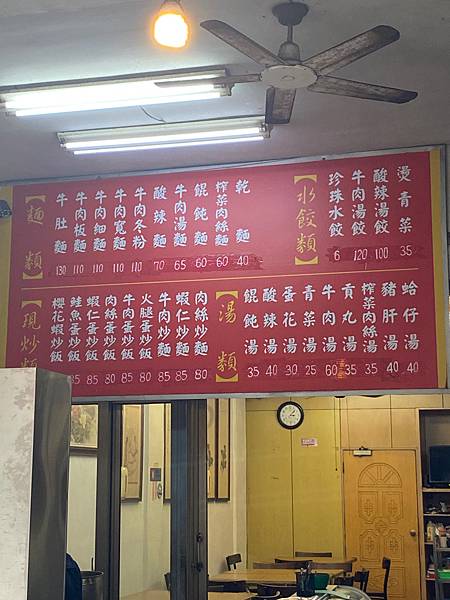 【麵類】
牛肚麵 130
牛肉板麵 110
牛肉細麵 110
牛肉寬麵 110
牛肉冬粉 110
酸辣麵 70
牛肉湯麵 65
餛飩麵 60
榨菜肉絲麵 60
乾麵 40
【水餃類】
珍珠水餃 6
牛肉湯餃 120
酸辣湯餃 100
燙青菜 35
【現炒類
櫻花蝦炒飯
鮭魚蛋炒飯 85
蝦仁蛋炒飯 85
肉絲蛋炒飯 80
牛肉蛋炒飯 85
火腿蛋炒飯 80
牛肉炒麵 85
蝦仁炒麵 85
肉絲炒麵 80
【湯類】
餛飩湯 35
酸辣湯 40
蛋花湯 30
青菜湯 25
牛肉湯 60
貢丸湯 35
榨菜肉絲湯 35
豬肝湯 40
蛤仔湯 40